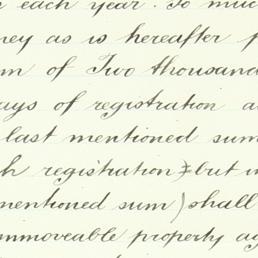 each year. To much
ney as is hereafter p
m of Two thousand
ays of registration a
last mentioned sum
h registration) but in
mentioned sum) shall
mmoveable property ag